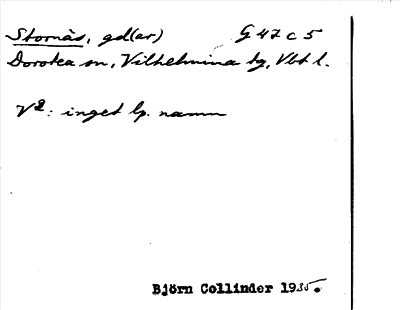 Stornäs, gd(ar) G 47 c 5
Dorotea sn, Vilhelmina tg, Vbt l.
V2: inget lp. namn
Björn Collinder 1935.